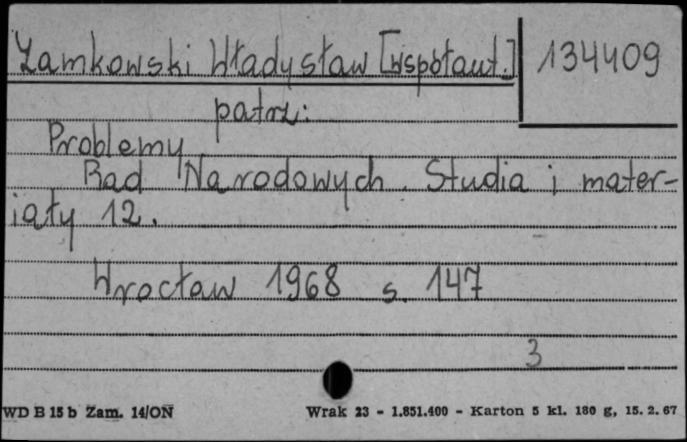 Zamkowski Władysław [współaut.] 134409
patrz:
Problemy
Rad Narodowych. Studia i mater-
iały 12.
Wrocław 1968 s. 147
3
WD B 15 b Zam. 14/ON Wrak 23 - 1.851.400 - Karton 5 kl. 180 g, 15. 2. 67